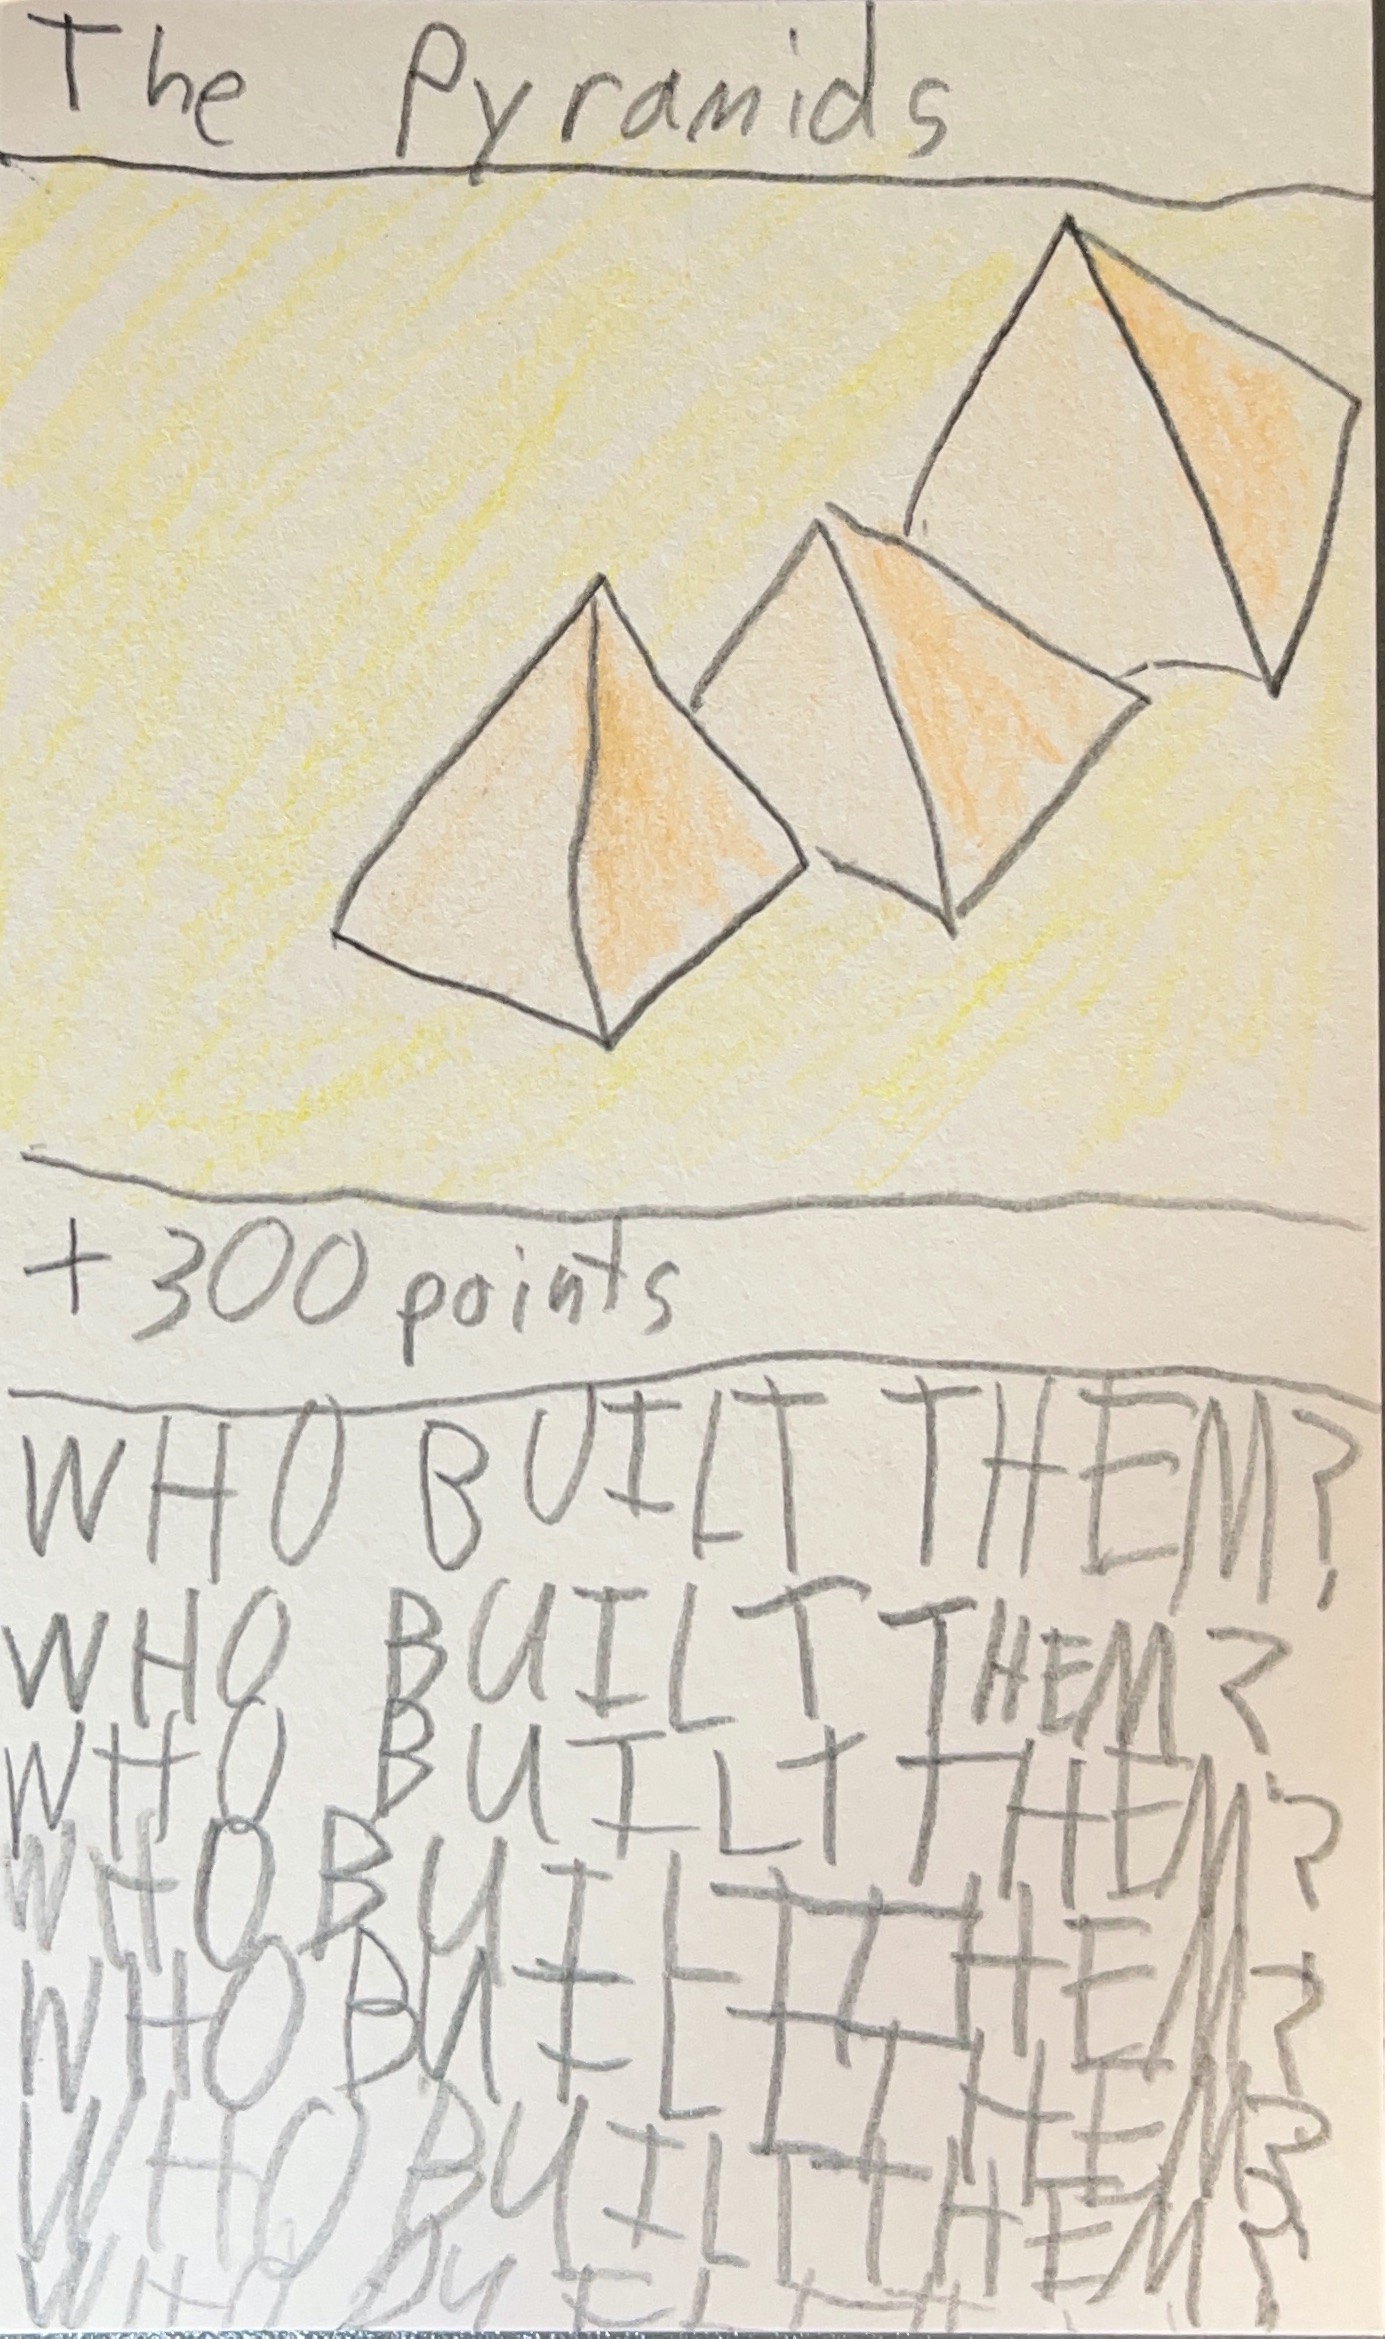 The Pyramids
+300 points
WHO BUILT THEM?
WHO BUILT THEM?
WHO BUILT THEM?
WHO BUILT THEM?
WHO BUILT THEM?
WHO BUILT THEM?
WHO BUILT